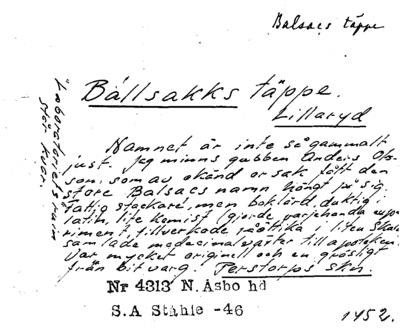 Balsacs täppe
Bállsakks täppe.
Lillaryd
Namnet är inte så gammalt
just. Jeg minns gubben Anders Ols-
son, som av okänd orsak fått den
store Balsacs namn hängt på sig.
Fattig stackare, men boklärd, duktig i
latin, lite kemist (gjorde varjehanda expe-
riment, tillverkade råätika i liten skala
samlade medecinalväxter till apoteken.
Var mycket originell och en gräsligt
från bitvarg. Perstorps skn.
Laboratoriets ruin
står kvar.
Nr 4313 N. Åsbo hd
S.A Ståhle -46
1952.